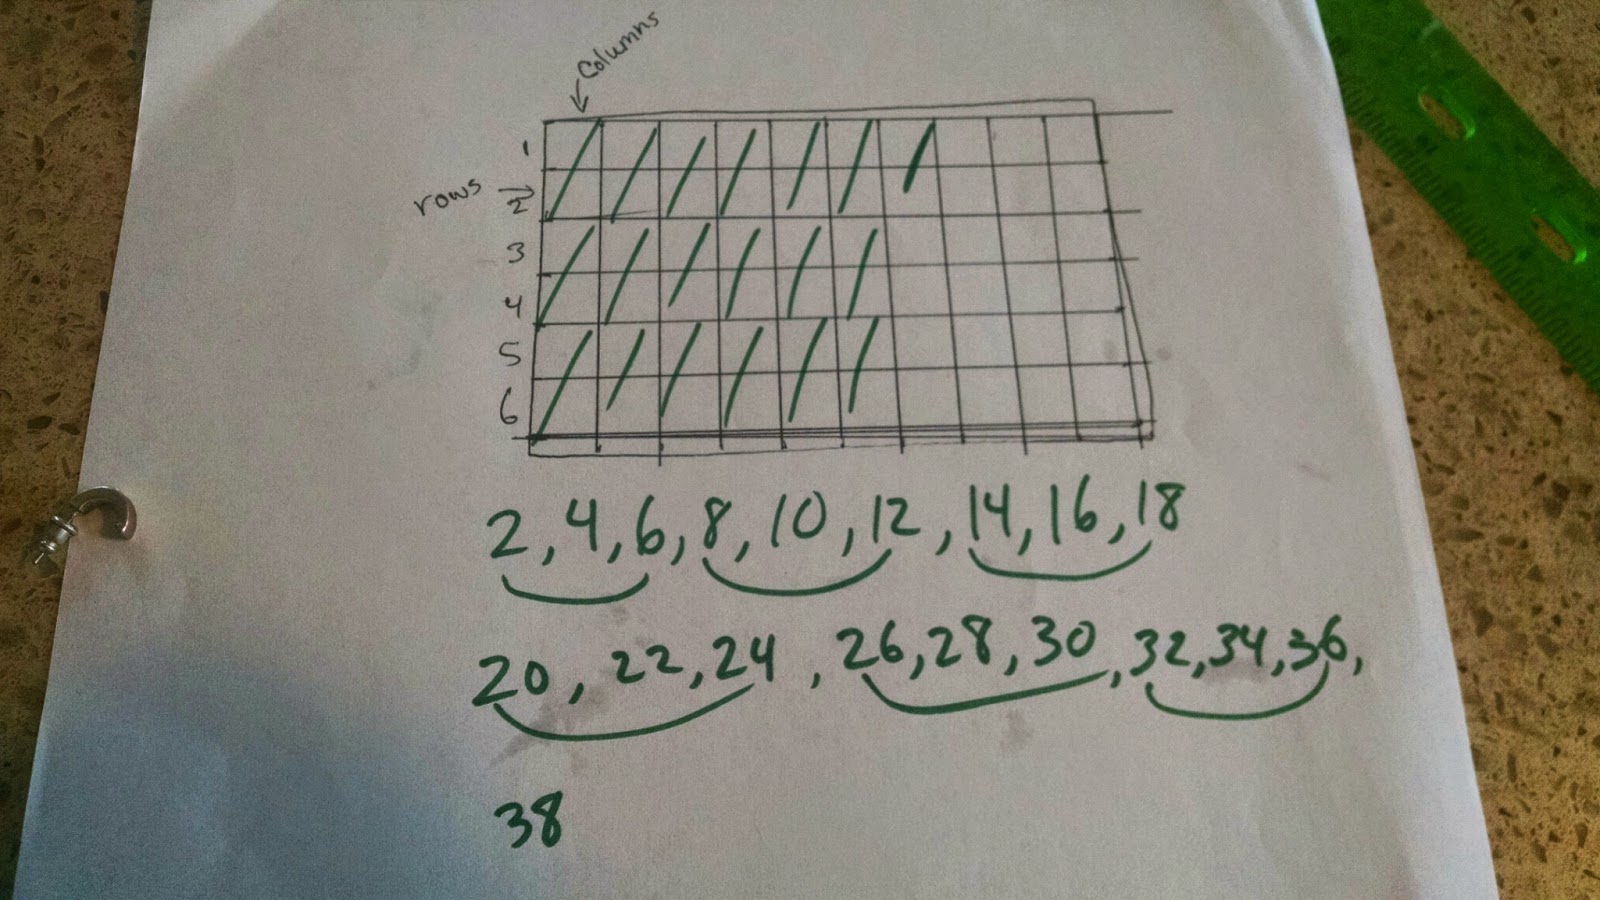 columns
1
rows 2
3
4
5
6
2, 4, 6, 8, 10, 12, 14, 16, 18
20, 22, 24, 26, 28, 30, 32, 34, 36,
38